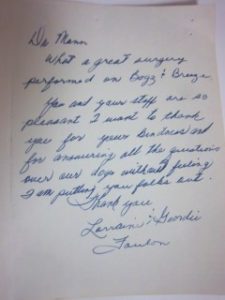 Dr Mann
What a great surgery
performed on Bogg & Breeze.
You and your staff are so
pleasant I want to thank
you for your kindness and
for answering all the questions
over our dogs without feeling
I am putting you folks out.
Thank you
Lorraine & Geordie